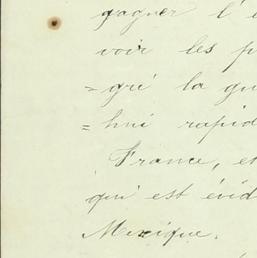 gagner l'
voir les p
=gré la gu
=hui rapid
France, et
qui est évid
Mexique.